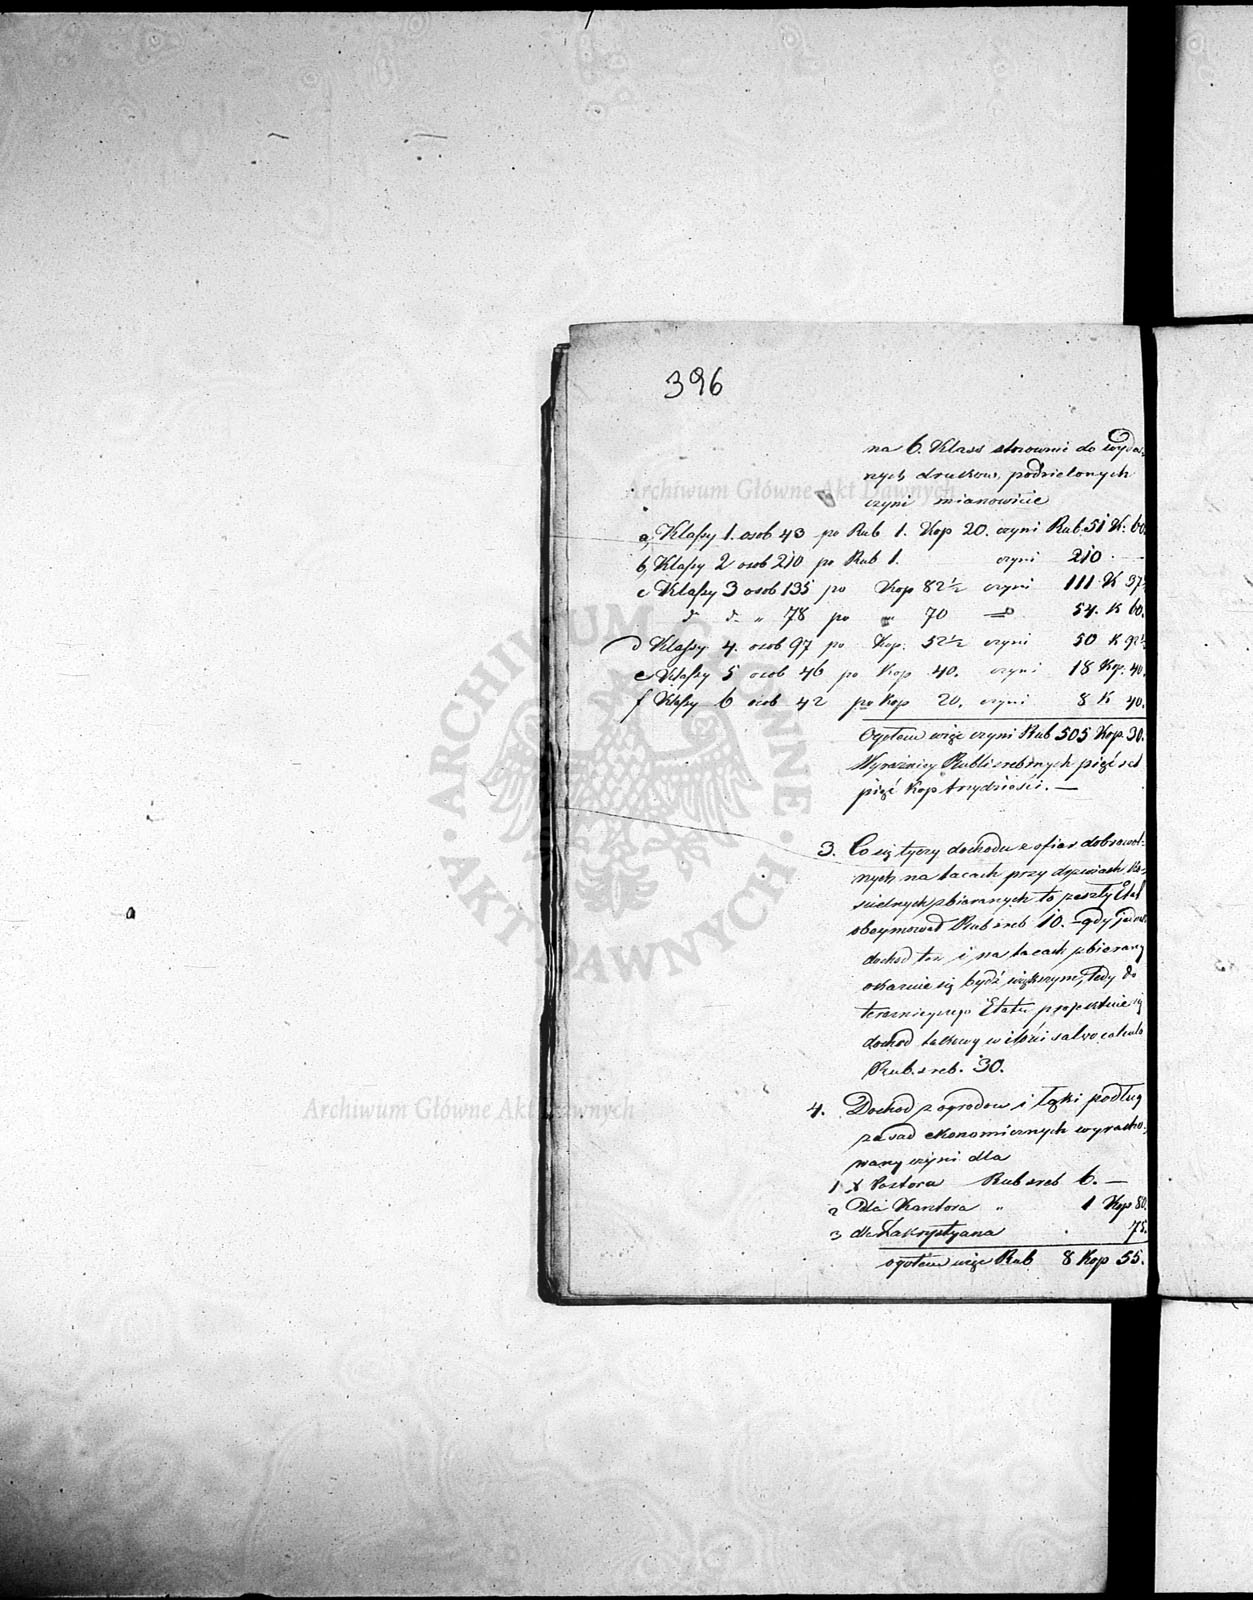 396
na 6. Klass stosownie do wyda-
nych druków podzielonych
czyni mianowicie
a, Klassy 1. osob 43 po Rub 1. Kop 20. czyni Rub. 51 K. 60.
b, Klassy 2 osob 210 po Rub 1. czyni 210 . —
c Klassy 3 osob 135 po Kop 82½ czyni 111 K 37½
do do " 78 po " 70 do 54. K 60.
d Klassy 4. osob 97 po Kop. 52½ czyni 50 K 92½
e Klassy 5 osob 46 po Kop 40. czyni 18 Kop. 40.
f Klassy 6 osob 42 po Kop 20. czyni 8 K 40.
Ogółem więc czyni Rub 505 Kop. 30.
Wyraźniey Rubli srebrnych pięć set
pięć Kop trzydzieści. —
3. Co się tyczy dochodu z ofiar dobrowol-
nych na tacach przy drzwiach Ko-
scielnych zbieranych to przeszły Etat
obeymował Rub sreb 10. — gdy jedn.
dochod ten i na tacach zbierany
okazuie się bydź większym, tedy do
terazniejszego Etatu
dochod tackowy w ilości salvo calculo
Rub. sreb. 30.
4. Dochod z ogrodow i łąki podług
zasad ekonomicznych wyracho-
wany czyni dla
1 X Pastora Rub sreb 6. —
2 dla Kantora " 1 Kop 80.
3 dla Zakrystyana . 75.
ogółem więc Rub 8 Kop 55.
Archiwum Główne Akt Dawnych
ARCHIWUM GŁÓWNE · AKT DAWNYCH ·
Archiwum Główne Akt Dawnych